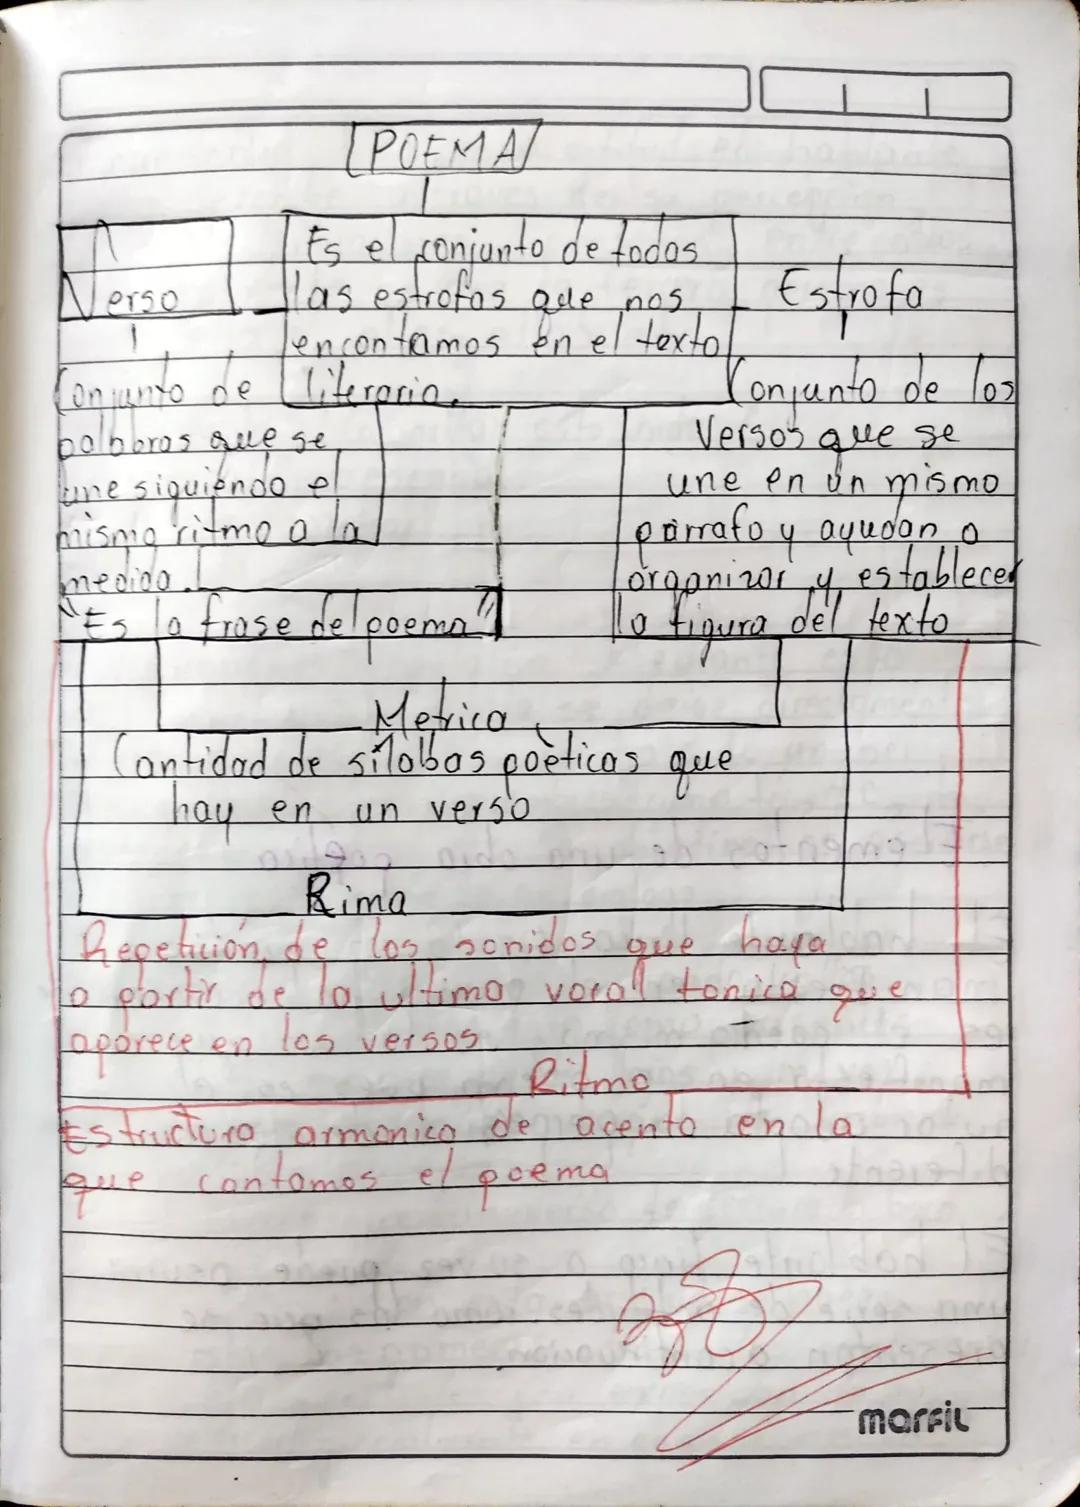 POEMA
Es el conjunto de todos
las estrofas que nos
encontamos en el texto
literario.
Verso
Conjunto de
palabras que se
une siguiendo el
mismo ritmo a la
medida.
"Es la frase del poema"
Estrofa
Conjunto de los
Versos que se
une en un mismo
párrafo y ayudan a
organizar y establecer
la figura del texto
Metrica
Cantidad de sílabas poèticas que
hay en un verso
Rima
Repetición de los sonidos que haya
a partir de la ultima vocal tonica que
aparece en los versos
Ritmo
Estructura armonica de acento en la
que cantamos el poema
marfil